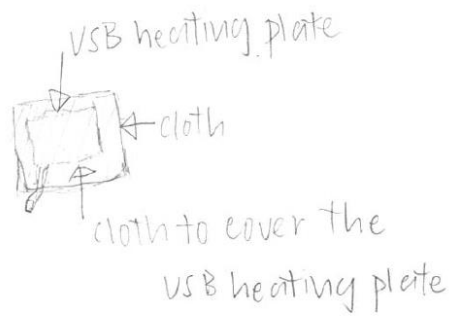 USB heating plate
cloth
cloth to cover the
USB heating plate